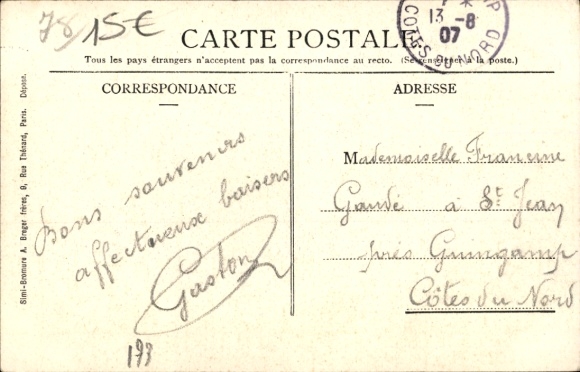 78
15€
CARTE POSTALE
Tous les pays étrangers n'acceptent pas la correspondance au recto. (Se renseigner à la poste.)
13 -8
07
COTES DU NORD
CORRESPONDANCE
Bons souvenirs
affectueux baisers
Gaston
193
ADRESSE
Mademoiselle Francine
Gaudé à St Jean
près Guingamp
Côtes du Nord
Simi-Bromure A. Breger frères, 9, Rue Thénard, Paris. Déposé.